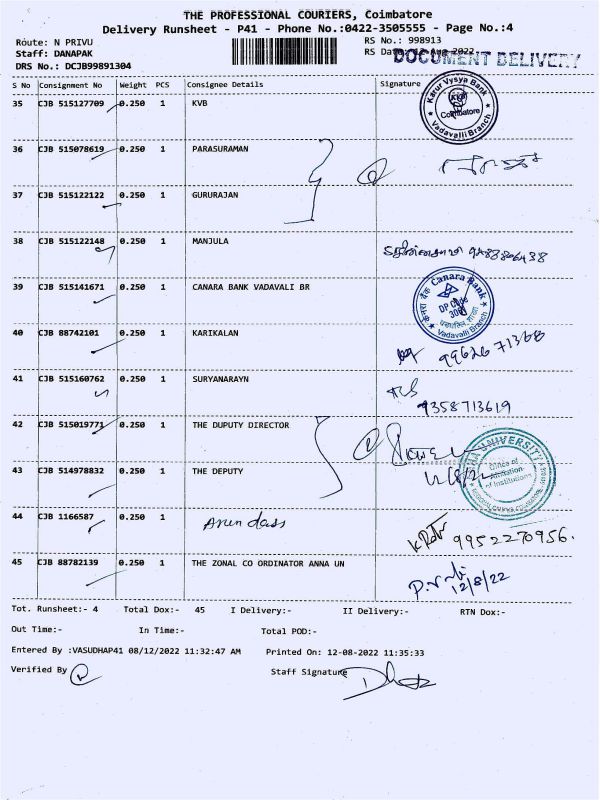 THE PROFESSIONAL COURIERS, Coimbatore
Delivery Runsheet - P41 - Phone No.:0422-3505555 - Page No.:4
Route: N PRIVU RS No.: 998913
Staff: DANAPAK RS Date: 12 Aug 2022
DOCUMENT DELIVERY
DRS No.: DCJB99891304
S No Consignment No Weight PCS Consignee Details Signature
35 CJB 515127709 0.250 1 KVB
Karur Vysya Bank
Coimbatore
Vadavalli Branch
36 CJB 515078619 0.250 1 PARASURAMAN
37 CJB 515122122 0.250 1 GURURAJAN
38 CJB 515122148 0.250 1 MANJULA
39 CJB 515141671 0.250 1 CANARA BANK VADAVALI BR
केनरा बैंक Canara Bank
DP Code
Vadavalli Branch
40 CJB 88742101 0.250 1 KARIKALAN
99626 71368
41 CJB 515160762 0.250 1 SURYANARAYN
9358713619
42 CJB 515019771 0.250 1 THE DUPUTY DIRECTOR
43 CJB 514978832 0.250 1 THE DEPUTY
12/8/22
UNIVERSITY
Office of
Affiliation
of Institutions
44 CJB 1166587 0.250 1 Arun dass
9952270956.
45 CJB 88782139 0.250 1 THE ZONAL CO ORDINATOR ANNA UN
12/8/22
Tot. Runsheet:- 4 Total Dox:- 45 I Delivery:- II Delivery:- RTN Dox:-
Out Time:- In Time:- Total POD:-
Entered By :VASUDHAP41 08/12/2022 11:32:47 AM Printed On: 12-08-2022 11:35:33
Verified By Staff Signature